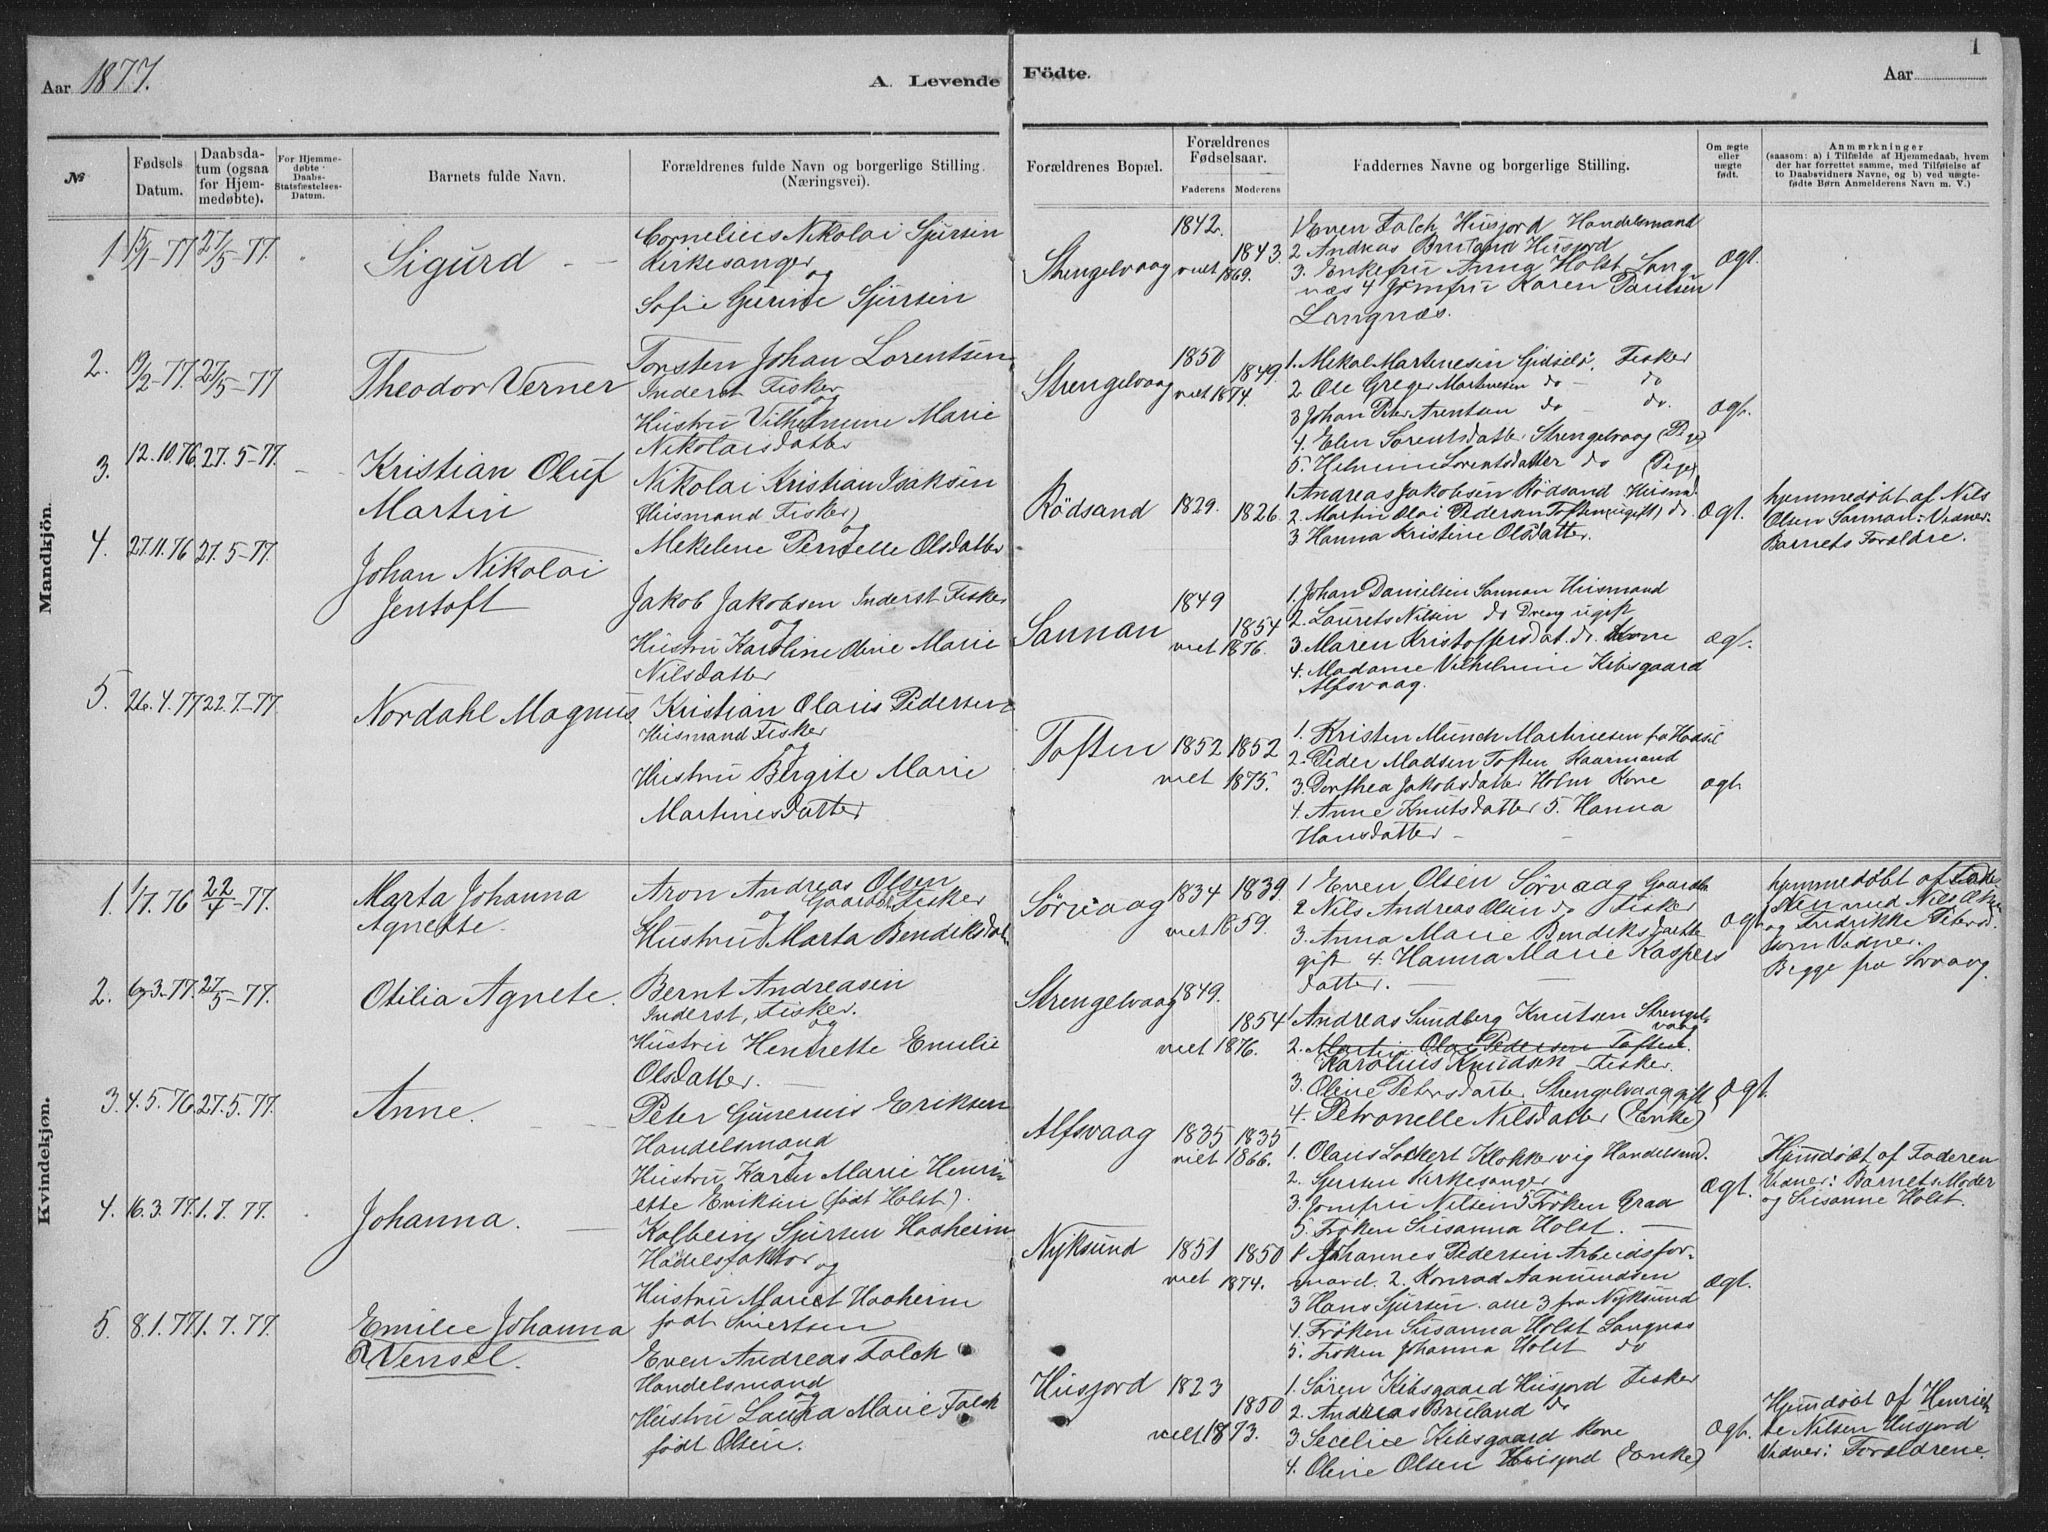 Aar 1877.
A. Levende Födte.
Aar
1
№
Fødsels Datum.
Daabsdatum (ogsaa for Hjemmedøbte).
For Hjemmedøbte: Daabs-Statsfæstelses-Datum.
Barnets fulde Navn.
Forældrenes fulde Navn og borgerlige Stilling. (Næringsvei).
Forældrenes Bopæl.
Forældrenes Fødselsaar.
Faderens Moderens
Faddernes Navne og borgerlige Stilling.
Om ægte eller uægte født.
Anmærkninger
(saasom: a) i Tilfælde af Hjemmedaab, hvem der har forrettet samme, med Tilføielse af to Daabsvidners Navne, og b) ved uægtefødte Børn Anmelderens Navn m. V.)
Mandkjön.
1 15/1-77 27/5-77.
Sigurd
Cornelius Nikolai Sjursen
Kirkesanger
og
Sofie Gurine Sjursen
Strengelvaag
1842. 1843.
viet 1869.
1 Even Falch Husjord Handelsmand
2 Andreas Bruland Husjord
3. Enkefru Anna Holst Lang
næs 4 Jomfru Karen Paulsen
Langnæs.
Ægt.
2. 19/2-77. 27/5-77
Theodor Verner
Torsten Johan Lorentsen
Inderst Fisker
og
Hustru Vilhelmine Marie
Nikolaisdatter
Strengelvaag
1850 1849.
viet 1874.
1. Mekal Martinesen Gidselø. Fisker
2 Ole Greger Martinesen do - do
3 Johan Peter Arentsen do - do.
4. Elen Lorentsdatter Strengelvaag (Pige)
5. Helmine Lorentsdatter do (Pige)
Ægt.
3. 12.10.76 27.5-77.
Kristian Oluf
Martin
Nikolai Kristian Isaksen
(Husmand Fisker)
og
Mekelene Pernelle Olsdatter
Rödsand
1829. 1826.
1. Andreas Jakobsen Rödsand Husmd.
2. Martin Olai Pedersen Toften (ugift) do
3 Hanna Kristine Olsdatter.
Ægt.
hjemmedöbt af Nils
Olsen Sannan: Vidner:
Barnets Foraldre.
4. 27.11.76 27.5-77.
Johan Nikolai
Jentoft
Jakob Jakobsen Inderst Fisker
og
Hustru Karoline Oline Marie
Nilsdatter
Sannan
1849 1854
viet 1876.
1. Johan Danielsen Sannan Husmand
2. Laurets Nilsen do Dreng ugift
3 Maren Kristoffersdat. do. Kone
4. Madame Vilhelmine Kibsgaard
Alfsvaag.
ægt.
5. 26.4.77 22.7-77.
Nordahl Magnus
Kristian Olaus Pedersen
Husmand Fisker
og
Hustru Bergite Marie
Martinesdatter
Toften
1852 1852
viet 1875.
1. Kristen Munch Martinesen fra Hadsel
2. Peder Madsen Toften Kaarmand
3. Dorthea Jakobsdatter Holm Kone
4. Anne Knutsdatter 5. Hanna
Hansdatter
ægt.
Kvindekjøn.
1. 1/7.76 22/4-77.
Marta Johanna
Agnette.
Aron Andreas Olsen
Gaardbr. Fisker
og
Hustru Marta Bendiksdatr
Sörvaag
1834 1839.
viet 1859.
1 Even Olsen Sörvaag Gaardbr
2 Nils Andreas Olsen do Fisker
3. Anna Marie Bendiksdatter
gift 4. Hanna Marie Kaspers
datter.
ægt.
hjemmedöbt af Fade
ren med Nils Olsen
og Fredrikke Petersd.
som Vidner.
Begge fra Sørvaag
2. 6/3.77. 27/5-77.
Otilia Agnete.
Bernt Andreasen
Inderst, Fisker.
og
Hustru Henrette Emilie
Olsdatter.
Strengelvaag
1849. 1854
viet 1876.
1. Andreas Sundberg Knutsen Strengel-
vaag
2. Martin Olai Pedersen Toften.
Karolius Knudsen Fisker.
3. Oline Petersdatter Strengelvaag gift
4. Petronelle Nilsdatter (Enke)
Ægt.
3. 4.5.76 27.5.77.
Anne.
Peter Gunerius Eriksen
Handelsmand
og
Hustru Karen Marie Henri
ette Eriksen (født Holst).
Alfsvaag
1835 1835
viet 1866.
1. Olaus Lockert Klokkervig Handelsmd.
2. Sjursen Kirkesanger
3. Jomfru Nilsen 5 Fröken Graa
5. Fröken Susanna Holst.
Ægt.
Hjemdöbt af Faderen
Vidner: Barnets Moder
og Susanne Holst.
4. 16.3.77. 1.7.77.
Johanna.
Kolbein Sjursen Haaheim
Hadelsfaktor
og
Hustru Maret Haaheim
født Sivertsen
Nyksund
1851 1850
viet 1874.
1 Johannes Pedersen Arbeidsfor-
mand. 2. Konrad Aamundsen
3 Hans Sjursen. alle 3 fra Nyksund
4. Fröken Susanna Holst Langnæs
5. Fröken Johanna Holst do
Ægt.
5. 8.1.77 1.7.77.
Emilie Johanna
Wensel.
Even Andreas Falck
Handelsmand
og
Hustru Laura Marie Falck
født Olsen.
Husjord
1823 1850
viet 1873.
1. Sören Kibsgaard Husjord Fisker
2. Andreas Bruland do
3 Secelie Kibsgaard Kone
4. Oline Olsen Husjord (Enke)
Ægt.
Hjemdöbt af Henriet
te Nilsen Husjord
Vidner: Foraldrene.